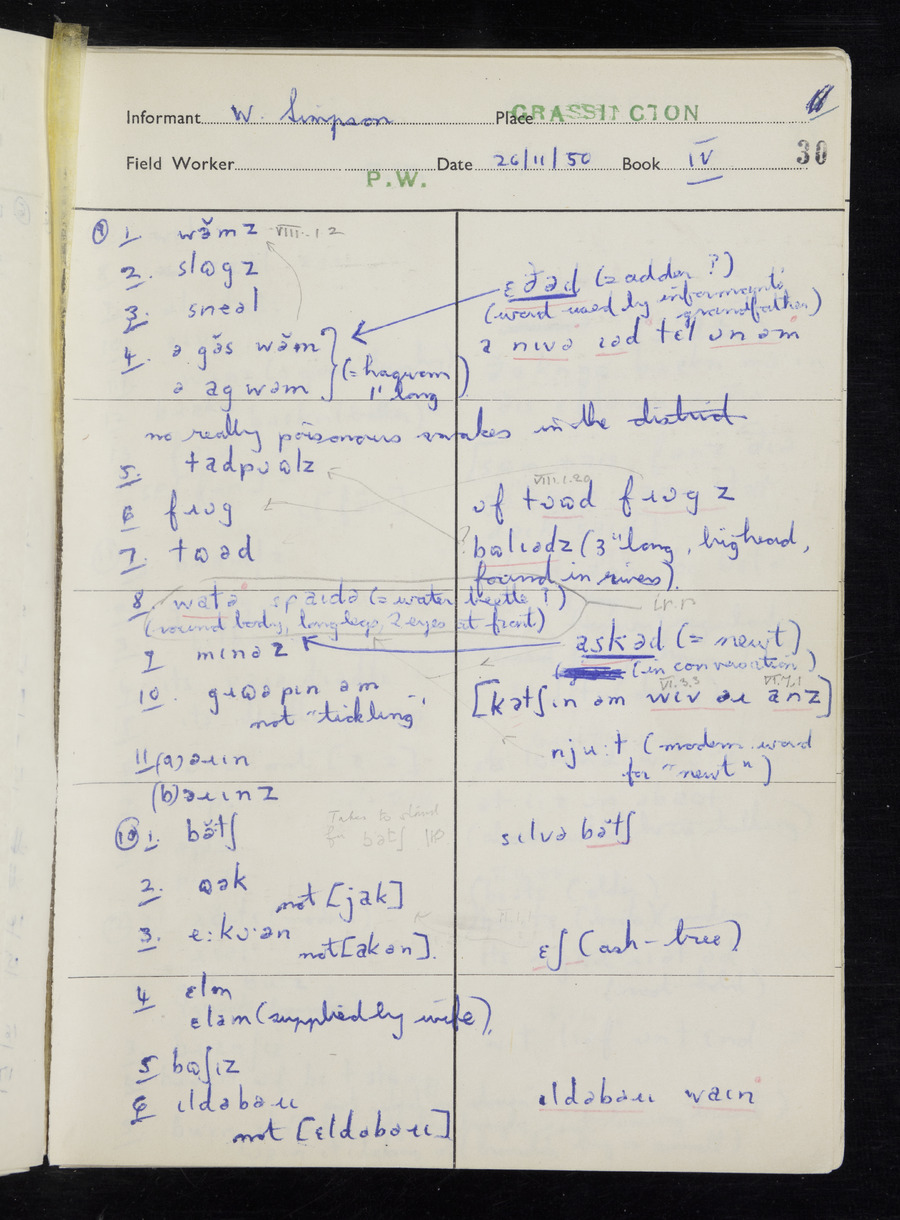 Informant W. Simpson Place GRASSINGTON
Field Worker P.W. Date 26/11/50 Book IV 30
⑨ 1. wə̆mz VIII.12
2. slɷgz
3. sneəl
4. ə găs wə̆m
ə ag wəm (= hagworm 1" long)
ɛðəd (= adder?)
(word used by informant's grandfather)
ə nɪvə ɪəd tɛl ɒn əm
no really poisonous snakes in the district
5. tadpʊɷlz
6. frɒg
7. tɷəd
ɒf tʊɷd frɒgz
VIII.1.20
? bɷlɪədz (3" long, big head,
found in rivers).
8. watə spaɪdə (= water beetle?)
(round body, long legs, 2 eyes at front)
9 mɪnəz
i.r.
askəd (= newt)
(in conversation)
10. grɷəpɪn əm
not "tickling"
[kətʃɪn əm wɪv əɪ anz]
VI.3.3 VI.7.1
njuːt (modern word
for "newt")
11 (a) əɪɪn
(b) əɪɪnz
⑩ 1. bə̆tʃ
Takes to stand
for bətʃ
sɪlvə bə̆tʃ
2. ɷək
not [jak]
3. eːkʊən
not [akən].
ɛʃ (ash-tree)
4 ɛlm
ɛləm (supplied by wife)
5 bɷʃɪz
6 ɪldəbəɪɪ
not [ɛldəbəɪɪ]
ɪldəbəɪɪ waɪn